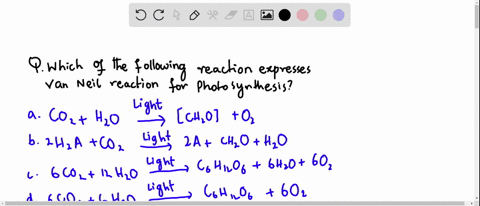 Q. Which of the following reaction expresses
Van Neil reaction for Photosynthesis?
a. CO₂ + H₂O Light → [CH₂O] + O₂
b. 2H₂A + CO₂ Light → 2A + CH₂O + H₂O
c. 6CO₂ + 12H₂O Light → C₆H₁₂O₆ + 6H₂O + 6O₂
d. 6CO₂ + 6H₂O Light → C₆H₁₂O₆ + 6O₂